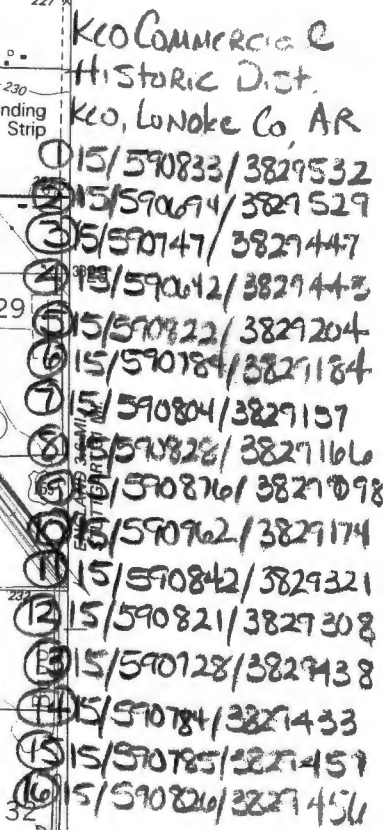 230
nding
Strip
Keo Commercial
Historic Dist.
Keo, Lonoke Co, AR
① 15/590833/3829532
② 15/590694/3829529
③ 15/590747/3829447
④ 15/590642/3829443
29
⑤ 15/590822/3829204
⑥ 15/590784/3829184
⑦ 15/590804/3829157
⑧ 15/590828/3829166
⑨ 15/590876/3829098
⑩ 15/590962/3829174
⑪ 15/590842/3829321
232
⑫ 15/590821/3829308
⑬ 15/590728/3829438
⑭ 15/590784/3829433
⑮ 15/590785/3829459
⑯ 15/590826/3829456
32